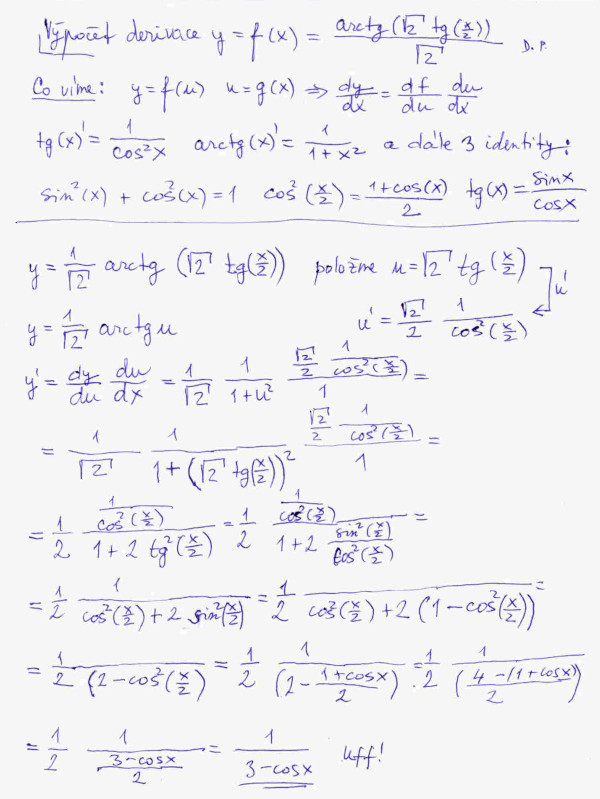 Výpočet derivace y = f(x) = arctg(√2 tg(x/2)) / √2 D.P.
Co víme: y = f(u) u = g(x) ⇒ dy/dx = df/du du/dx
tg(x)' = 1/cos²x arctg(x)' = 1/(1+x²) a dále 3 identity:
sin²(x) + cos²(x) = 1 cos²(x/2) = (1+cos(x))/2 tg(x) = sinx/cosx
y = 1/√2 arctg (√2 tg(x/2)) položme u = √2 tg(x/2) u'
y = 1/√2 arctg u u' = √2/2 1/cos²(x/2)
y' = dy/du du/dx = 1/√2 1/(1+u²) (√2/2 1/cos²(x/2))/1 =
= 1/√2 1/(1+(√2 tg(x/2))²) (√2/2 1/cos²(x/2))/1 =
= 1/2 (1/cos²(x/2))/(1+2 tg²(x/2)) = 1/2 (1/cos²(x/2))/(1+2 sin²(x/2)/cos²(x/2)) =
= 1/2 1/(cos²(x/2)+2 sin²(x/2)) = 1/2 1/(cos²(x/2)+2(1-cos²(x/2))) =
= 1/2 1/(2-cos²(x/2)) = 1/2 1/(2-(1+cosx)/2) = 1/2 1/((4-(1+cosx))/2)
= 1/2 1/((3-cosx)/2) = 1/(3-cosx) Uff!